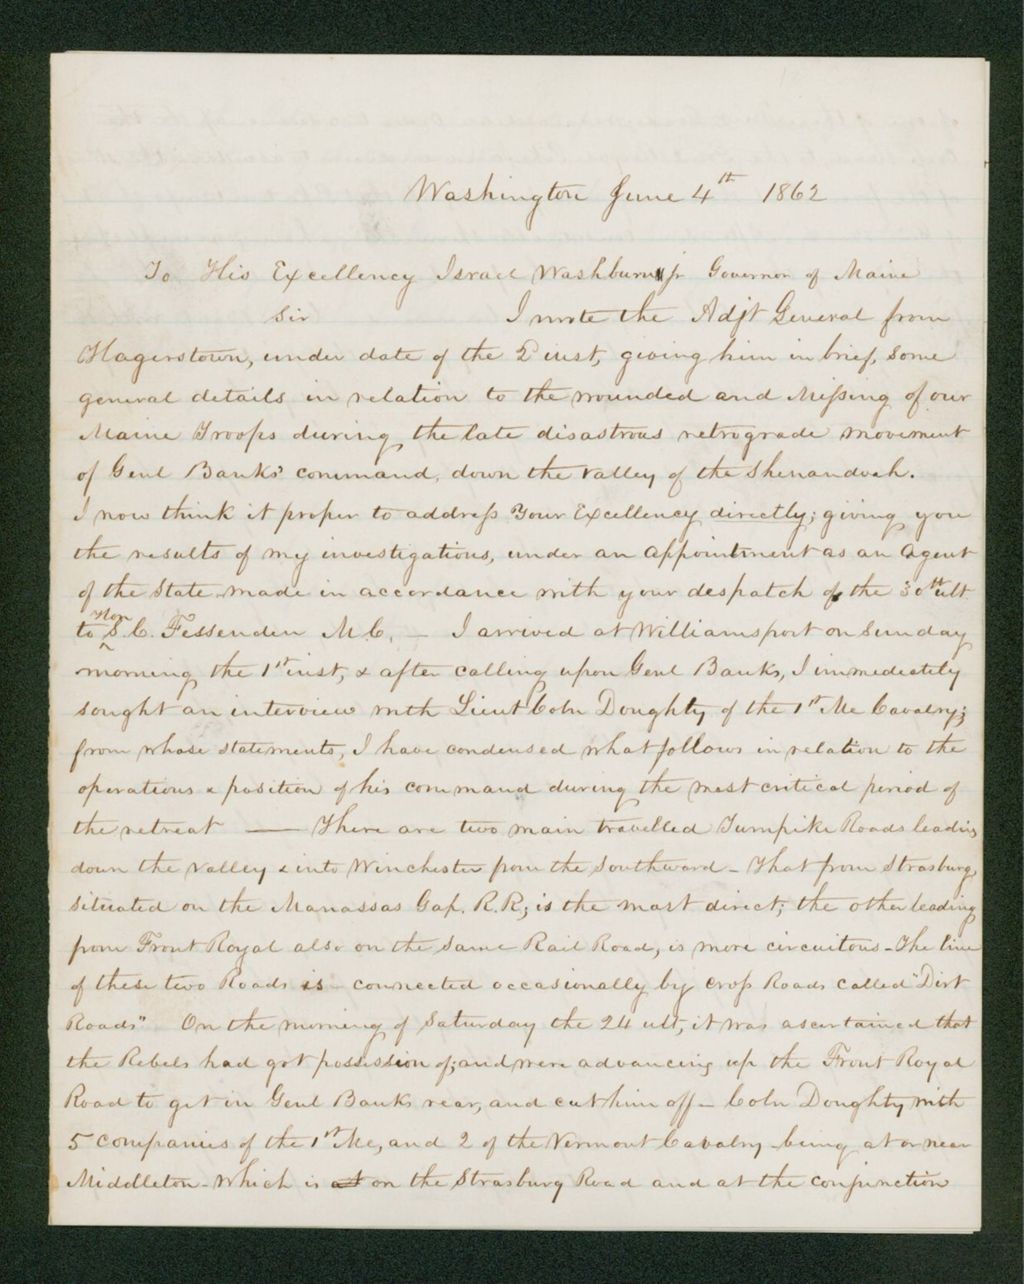 Washington June 4th 1862
To His Excellency Israel Washburn jr Governor of Maine
Sir I wrote the Adjt General from
Hagerstown, under date of the 2 inst, giving him in brief, some
general details in relation to the wounded and Missing of our
Maine Troops during the late disastrous retrograde movement
of Genl Banks' command, down the valley of the Shenandoah.
I now think it proper to address Your Excellency directly; giving you
the results of my investigations, under an appointment as an agent
of the State made in accordance with your despatch of the 30th ult
to Hon S. C. Fessenden M C. — I arrived at Williamsport on Sunday
morning the 1st inst, & after calling upon Genl Banks, I immediately
sought an interview with Lieut Coln Doughty of the 1st Me Cavalry;
from whose statements, I have condensed what follows in relation to the
operations & position of his command during the most critical period of
the retreat — There are two main travelled Turnpike Roads leading
down the valley & into Winchester from the Southward - That from Strasburg,
situated on the Manassas Gap. R. R; is the most direct; the other leading
from Front Royal also on the same Rail Road, is more circuitous - The line
of these two Roads is connected occasionally by cross Roads called "Dirt
Roads" On the morning of Saturday the 24 ult, it was ascertained that
the Rebels had got possession of, and were advancing up the Front Royal
Road to get in Genl Banks rear, and cut him off - Coln Doughty with
5 companies of the 1st Me, and 2 of the Vermont Cavalry being at or near
Middleton - which is at on the Strasburg Road and at the conjunction